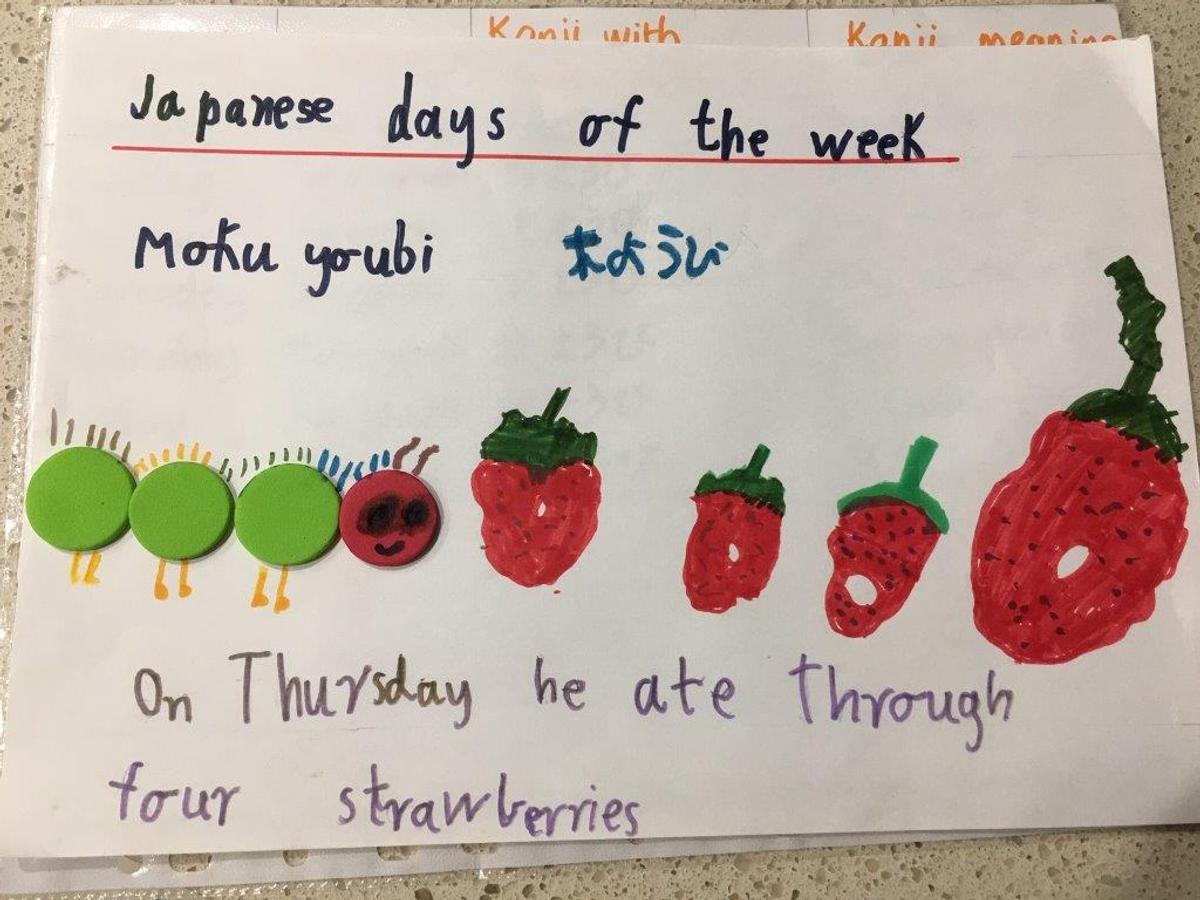 Kanji with Kanji meaning
Japanese days of the week
Moku youbi 木ようび
On Thursday he ate through
four strawberries